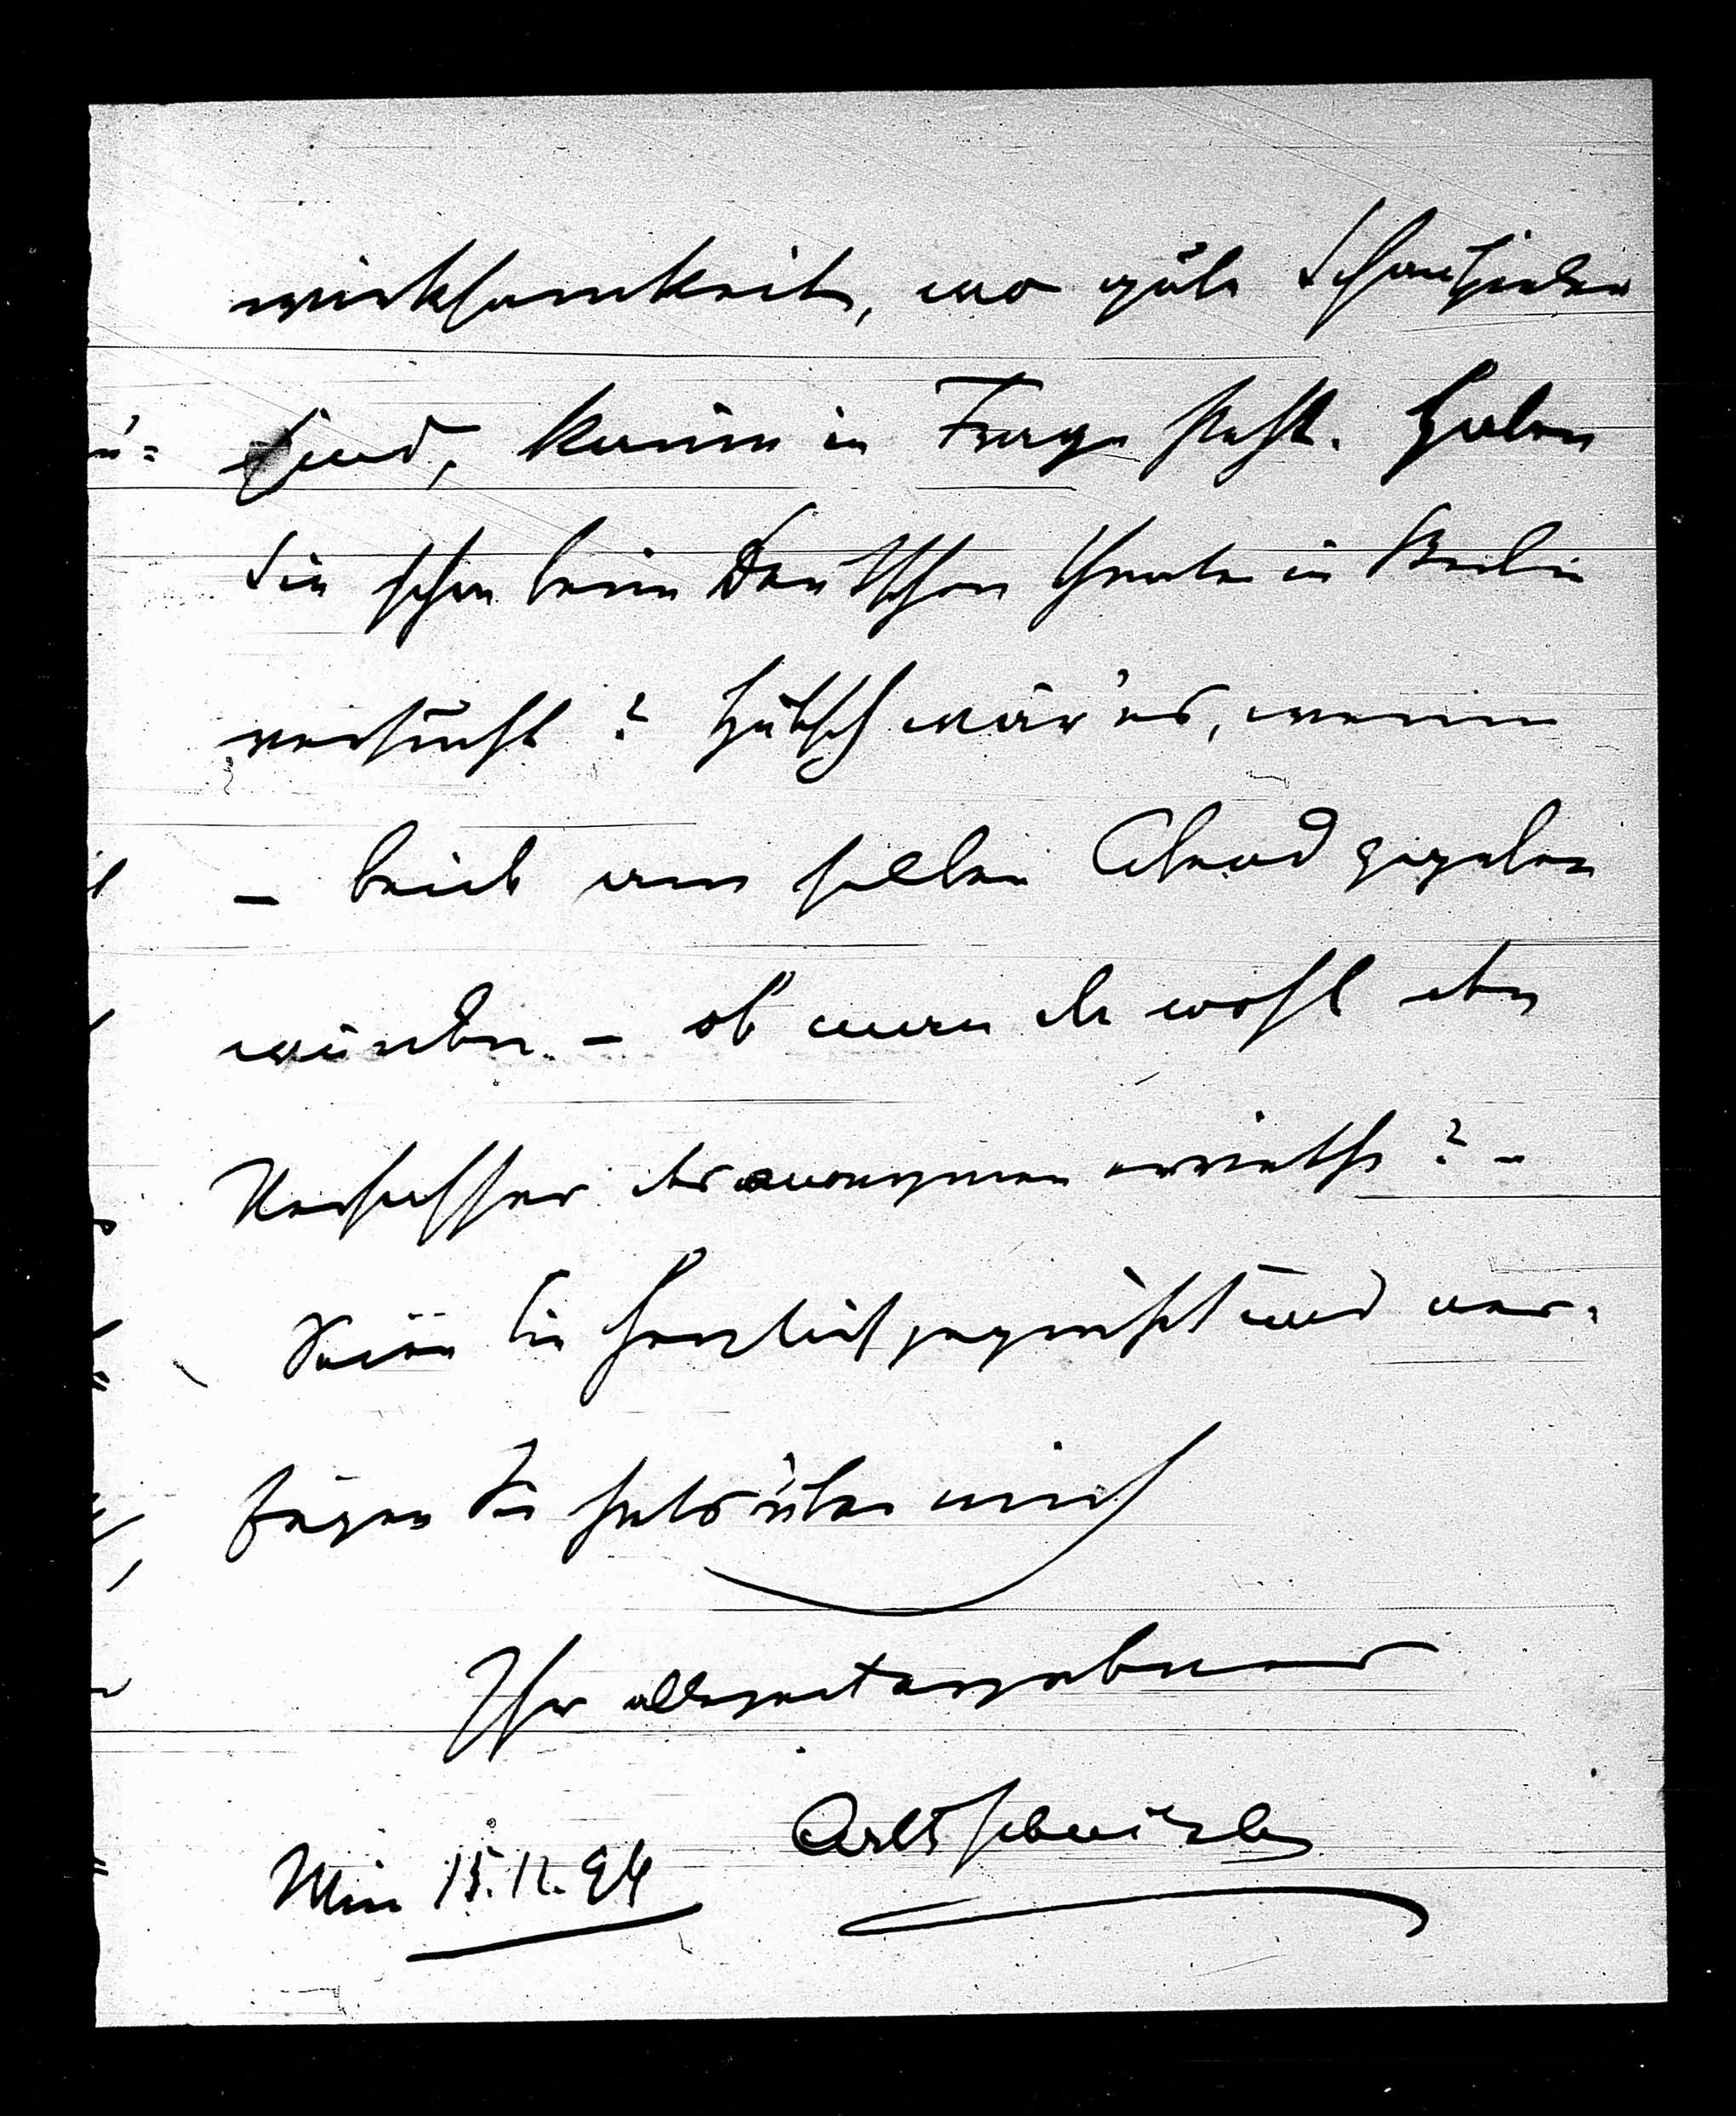 wirksamkeit, wo gute Schauspieler
sind, kaum in Frage steht. Haben
Sie schon beim Deutschen Theater in Berlin
versucht? Hübsch wär' es, wenn
– beide am selben Abend gegeben
würden. – ob man da wohl den
Verfasser des anonymen erriethe? –
Seien Sie herzlich gegrüßt und ver-
fügen Sie stets über mich
Ihr allzeit ergebener
ArthSchnitzler
Wien 15.12.94